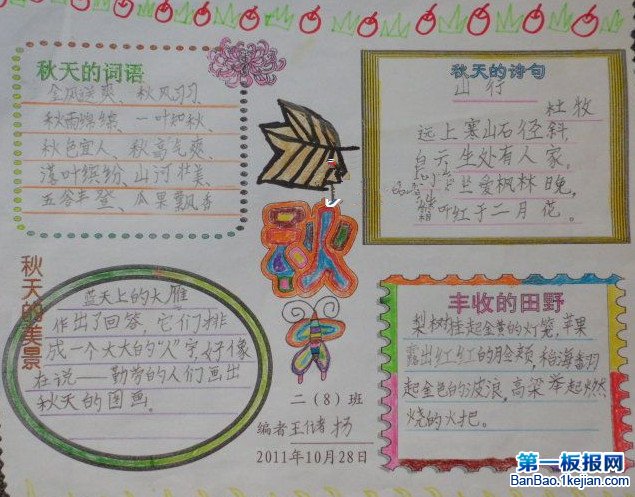 秋天的词语
金风送爽、秋风习习、
秋雨绵绵、一叶知秋、
秋色宜人、秋高气爽、
落叶缤纷、山河壮美、
五谷丰登、瓜果飘香
秋天的诗句
山行
杜牧
远上寒山石径斜,
白云生处有人家,
爱枫林晚,
红于二月花。
秋
秋天的美景
蓝天上的大雁
作出了回答,它们排
成一个大大的“人”字,好像
在说——勤劳的人们画出
秋天的图画。
二(8)班
编者王
2011年10月28日
丰收的田野
梨树挂起金黄的灯笼,苹果
露出红红的脸颊,稻海翻
起金色的波浪,高梁举起燃
烧的火把。
第一板报网
BanBao.1kejian.com